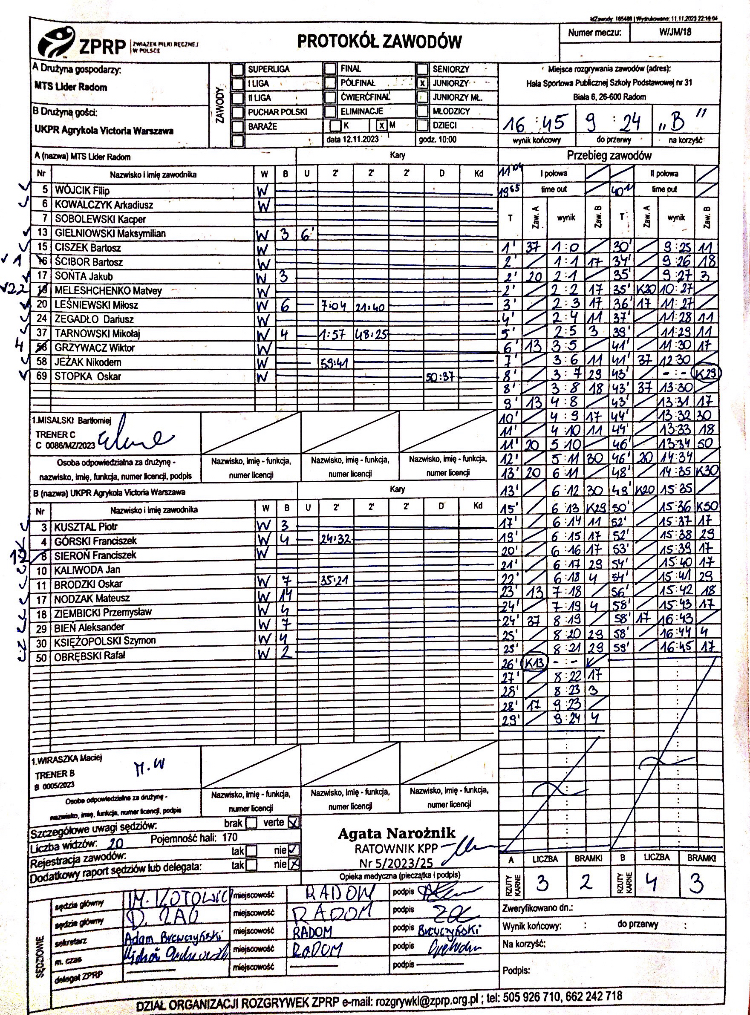 MZawody 165486 | Wydrukowano: 11.11.2023 22:16:04
ZPRP ZWIĄZEK PIŁKI RĘCZNEJ W POLSCE
PROTOKÓŁ ZAWODÓW
Numer meczu: W/JM/18
A Drużyna gospodarzy:
MTS Lider Radom
B Drużyna gości:
UKPR Agrykola Victoria Warszawa
ZAWODY
SUPERLIGA FINAŁ SENIORZY
I LIGA PÓŁFINAŁ X JUNIORZY
II LIGA ĆWIERĆFINAŁ JUNIORZY MŁ.
PUCHAR POLSKI ELIMINACJE MŁODZICY
BARAŻE K X M DZIECI
data 12.11.2023 godz. 10:00
Miejsce rozgrywania zawodów (adres):
Hala Sportowa Publicznej Szkoły Podstawowej nr 31
Biała 6, 26-600 Radom
16 : 45 9 : 24 „B"
wynik końcowy do przerwy na korzyść
A (nazwa) MTS Lider Radom Kary
Nr Nazwisko i imię zawodnika W B U 2' 2' 2' D Kd
5 WÓJCIK Filip W
6 KOWALCZYK Arkadiusz W
7 SOBOLEWSKI Kacper
13 GIELNIOWSKI Maksymilian W 3 6'
15 CISZEK Bartosz W
1 16 ŚCIBOR Bartosz W
17 SOŃTA Jakub W 3
22 MELESHCHENKO Matvey W
20 LEŚNIEWSKI Miłosz W 6 7:04 21:40
24 ŻEGADŁO Dariusz W
37 TARNOWSKI Mikołaj W 4 1:57 48:25
4 GRZYWACZ Wiktor W
58 JEŻAK Nikodem W 59:41
69 STOPKA Oskar W 50:37
1.MISALSKI Bartłomiej
TRENER C
C 0086/MZ/2023
Osoba odpowiedzialna za drużynę - nazwisko, imię, funkcja, numer licencji, podpis
Nazwisko, imię - funkcja, numer licencji
Nazwisko, imię - funkcja, numer licencji
Nazwisko, imię - funkcja, numer licencji
B (nazwa) UKPR Agrykola Victoria Warszawa Kary
Nr Nazwisko i imię zawodnika W B U 2' 2' 2' D Kd
3 KUSZTAL Piotr W 3
4 GÓRSKI Franciszek W 4 24:32
12 SIEROŃ Franciszek W
10 KALIWODA Jan
11 BRODZKI Oskar W 7 35:21
17 NODZAK Mateusz W 14
18 ZIEMBICKI Przemysław W 4
29 BIEŃ Aleksander W 7
30 KSIĘŻOPOLSKI Szymon W 4
50 OBRĘBSKI Rafał W 2
1.WIRASZKA Maciej
TRENER B
B 0005/2023
M.W
Osoba odpowiedzialna za drużynę - nazwisko, imię, funkcja, numer licencji, podpis
Nazwisko, imię - funkcja, numer licencji
Nazwisko, imię - funkcja, numer licencji
Nazwisko, imię - funkcja, numer licencji
Przebieg zawodów
I połowa II połowa
time out time out
T Zaw. A wynik Zaw. B T Zaw. A wynik Zaw. B
1' 37 1:0 30' 9:25 11
2' 1:1 17 34' 9:26 18
2' 20 2:1 35' 9:27 3
2' 2:2 17 35' K20 10:27
3' 2:3 17 36' 17 11:27
4' 2:4 11 37' 11:28 11
5' 2:5 3 39' 11:29 11
6' 13 3:5 41' 11:30 17
7' 3:6 11 41' 37 12:30
8' 3:7 29 43' -:- K29
8' 3:8 18 43' 37 13:30
9' 13 4:8 43' 13:31 17
10' 4:9 17 44' 13:32 30
11' 4:10 11 44' 13:33 18
11' 20 5:10 46' 13:34 50
12' 5:11 30 46' 20 14:34
13' 20 6:11 48' 14:35 K30
13' 6:12 30 48' K20 15:35
15' 6:13 K29 50' 15:36 K50
17' 6:14 11 52' 15:37 17
19' 6:15 17 52' 15:38 29
20' 6:16 17 53' 15:39 17
21' 6:17 29 54' 15:40 17
22' 6:18 4 54' 15:41 29
23' 13 7:18 56' 15:42 18
24' 7:19 4 58' 15:43 17
24' 37 8:19 58' 17 16:43
25' 8:20 29 58' 16:44 4
25' 8:21 29 59' 16:45 17
26' K13 -:-
27' 8:22 17
28' 8:23 3
28' 17 9:23
29' 9:24 4
Szczegółowe uwagi sędziów: brak verte
Liczba widzów: 20 Pojemność hali: 170
Rejestracja zawodów: tak nie
Dodatkowy raport sędziów lub delegata: tak nie
Agata Narożnik
RATOWNIK KPP
Nr 5/2023/25
Opieka medyczna (pieczątka i podpis)
A LICZBA BRAMKI B LICZBA BRAMKI
RZUTY KARNE 3 2 RZUTY KARNE 4 3
SĘDZIOWIE
sędzia główny miejscowość RADOM podpis
sędzia główny miejscowość RADOM podpis
sekretarz Adam miejscowość RADOM podpis
m. czas miejscowość RADOM podpis
delegat ZPRP miejscowość podpis
Zweryfikowano dn.:
Wynik końcowy: : do przerwy :
Na korzyść:
Podpis:
DZIAŁ ORGANIZACJI ROZGRYWEK ZPRP e-mail: rozgrywki@zprp.org.pl ; tel: 505 926 710, 662 242 718